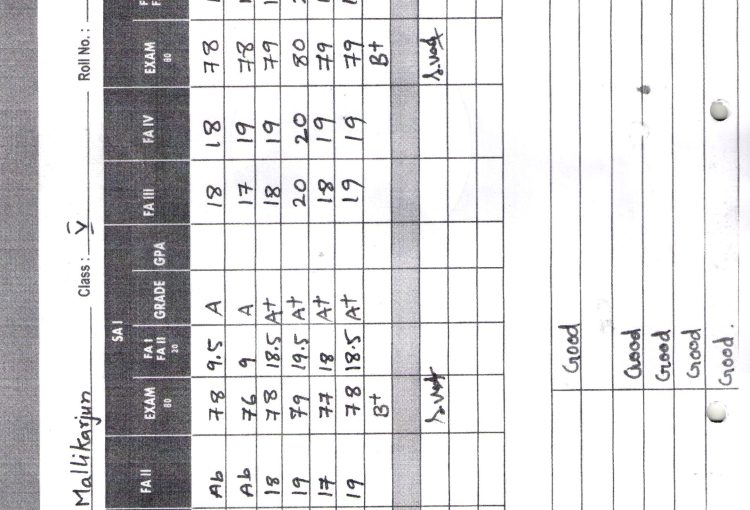 Mallikarjun Class : V Roll No. :
SA I
FA II EXAM 80 FA I FA II 20 GRADE GPA FA III FA IV EXAM 80
Ab 78 9.5 A 18 18 78
Ab 76 9 A 17 19 78
18 78 18.5 A+ 18 19 79
19 79 19.5 A+ 20 20 80
17 77 18 A+ 18 19 79
19 78 18.5 A+ 19 19 79
B+ B+
Good
Good
Good
Good
Good.